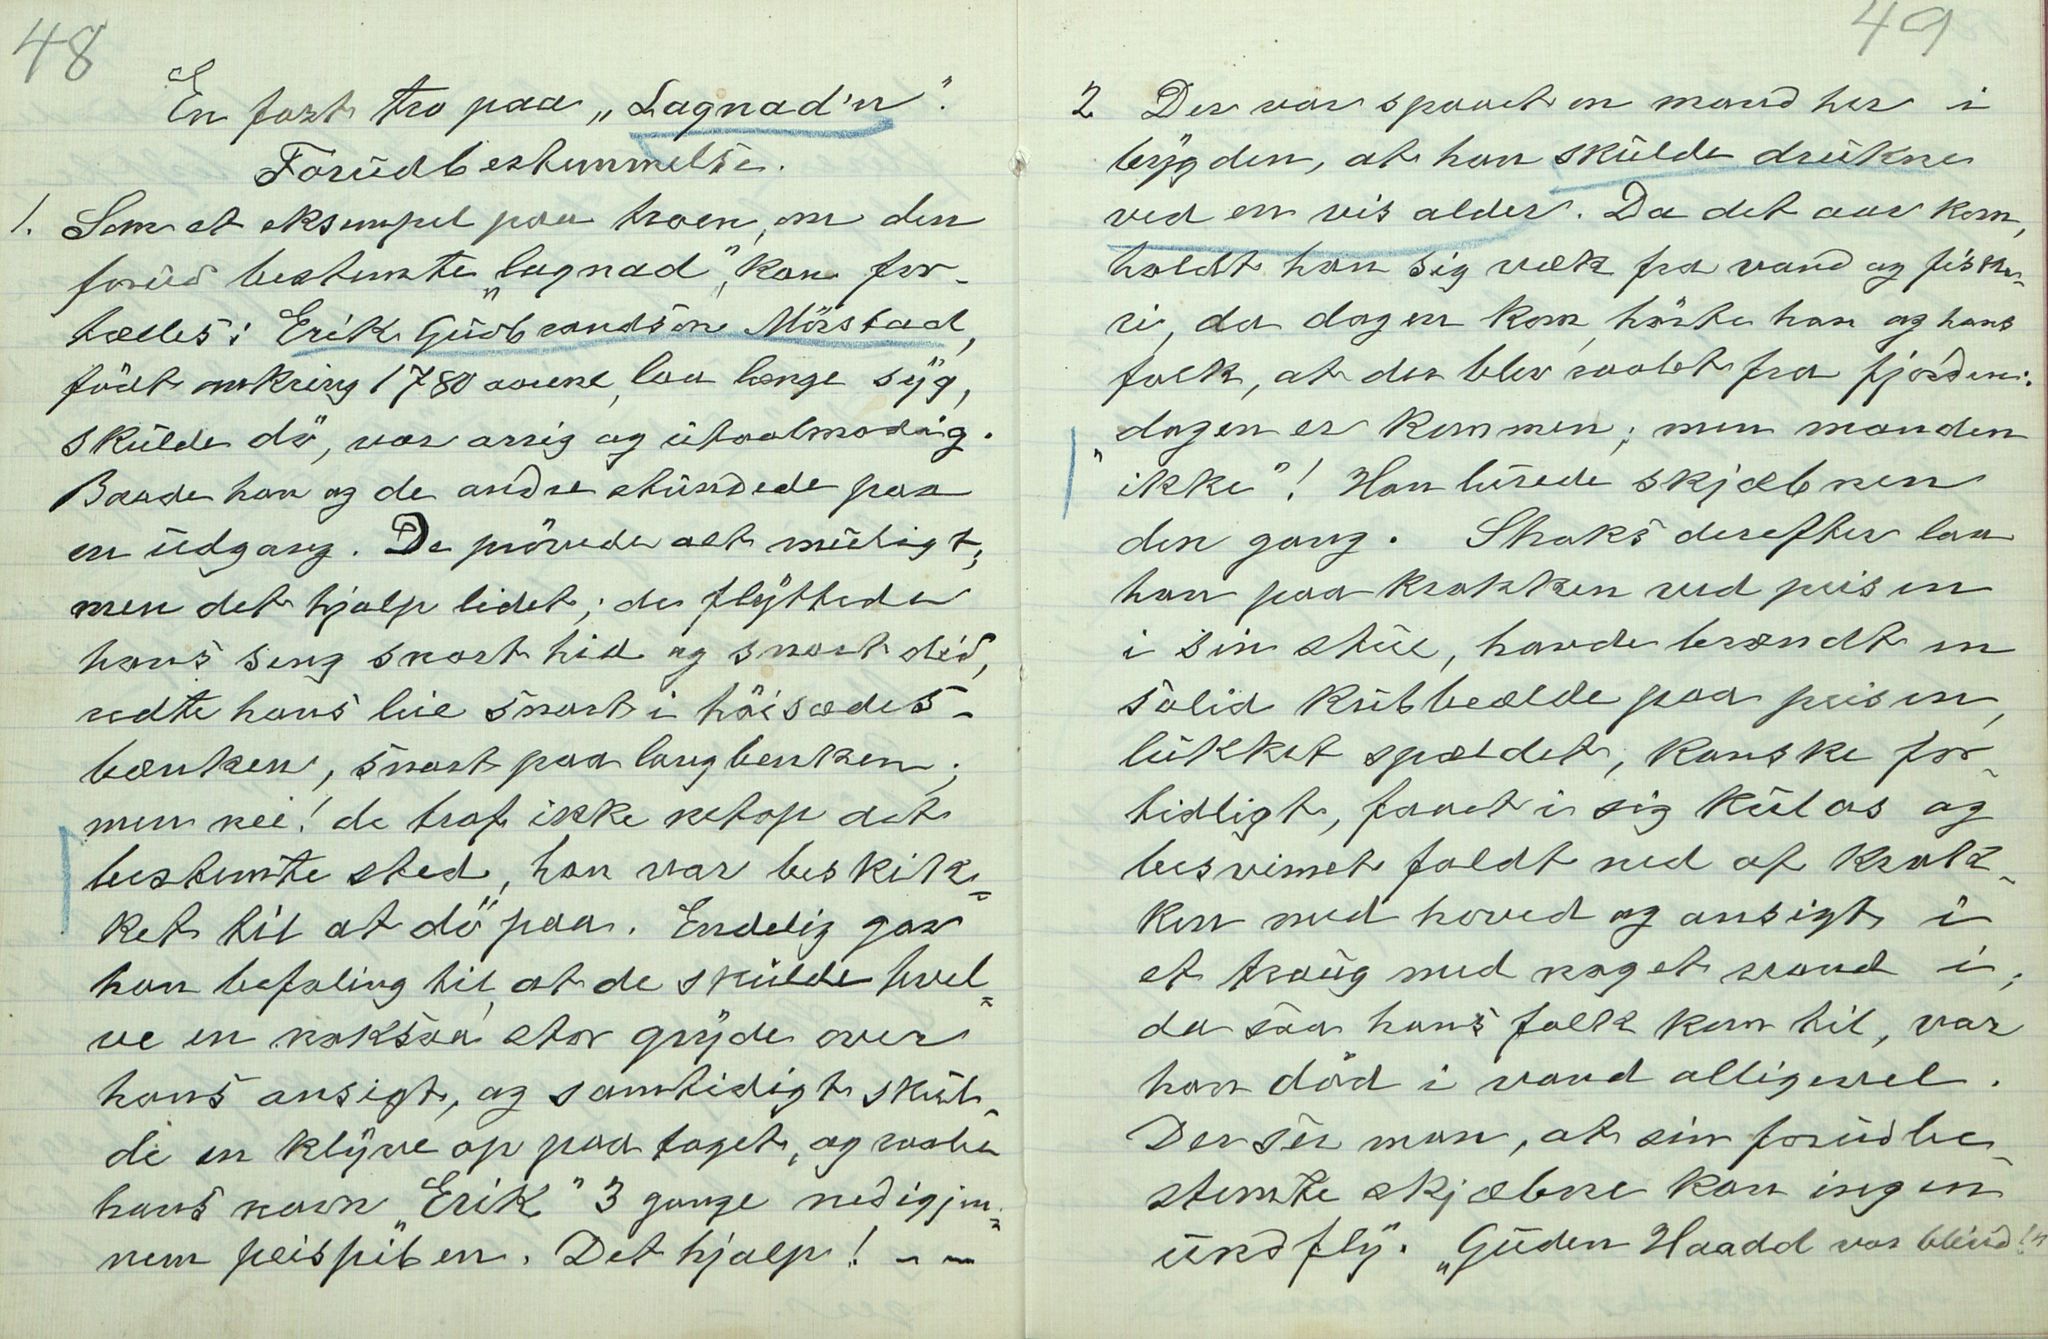 48
En fast tro paa „Lagnad'n".
Forudbestemmelse.
1. Som et eksempel paa troen, om den
forud bestemte „lagnad", kan for-
tælles: Erik Gudbrandsøn Mørstad,
født omkring 1780 aarene, laa længe syg,
skulde dø, var arrig og utaalmodig.
Baade han og de andre stundede paa
en udgang. De prøvede alt muligt,
men det hjalp lidet; de flyttede
hans seng snart hid og snart did,
redte hans leie snart i høisædes-
bænken, snart paa langbenken;
men nei! de traf ikke netop det
bestemte sted, han var beskik-
ket til at dø paa. Endelig gav
han befaling til, at de skulde hvel-
ve en noksaa stor gryde over
hans ansigt, og samtidigt skul-
de en klyve op paa taget, og raabe
hans navn „Erik" 3 gange ned igjen-
nem peispiben. Det hjalp! – –
49
2 Der var spaaet en mand her i
bygden, at han skulde drukne
ved en vis alder. Da det aar kom,
holdt han sig væk fra vand og fiske-
ri, da dagen kom, hørte han og hans
folk, at der blev raabt fra fjorden:
„dagen er kommen; men manden
ikke"! Han lurede skjæbnen
den gang. Straks derefter laa
han paa krakken ved peisen
i sin stue, havde brændt en
solid kubbeælde paa peisen,
lukket spjeldet, kanske for-
tidligt, faaet i sig kulos og
besvimet faldt ned af krak-
ken med hoved og ansigt i
et traug med noget vand i;
da saa hans folk kom til, var
han død i vand alligevel.
Der sér man, at sin forudbe-
stemte skjæbne kan ingen
undfly. „Guden Haadd var blind!"